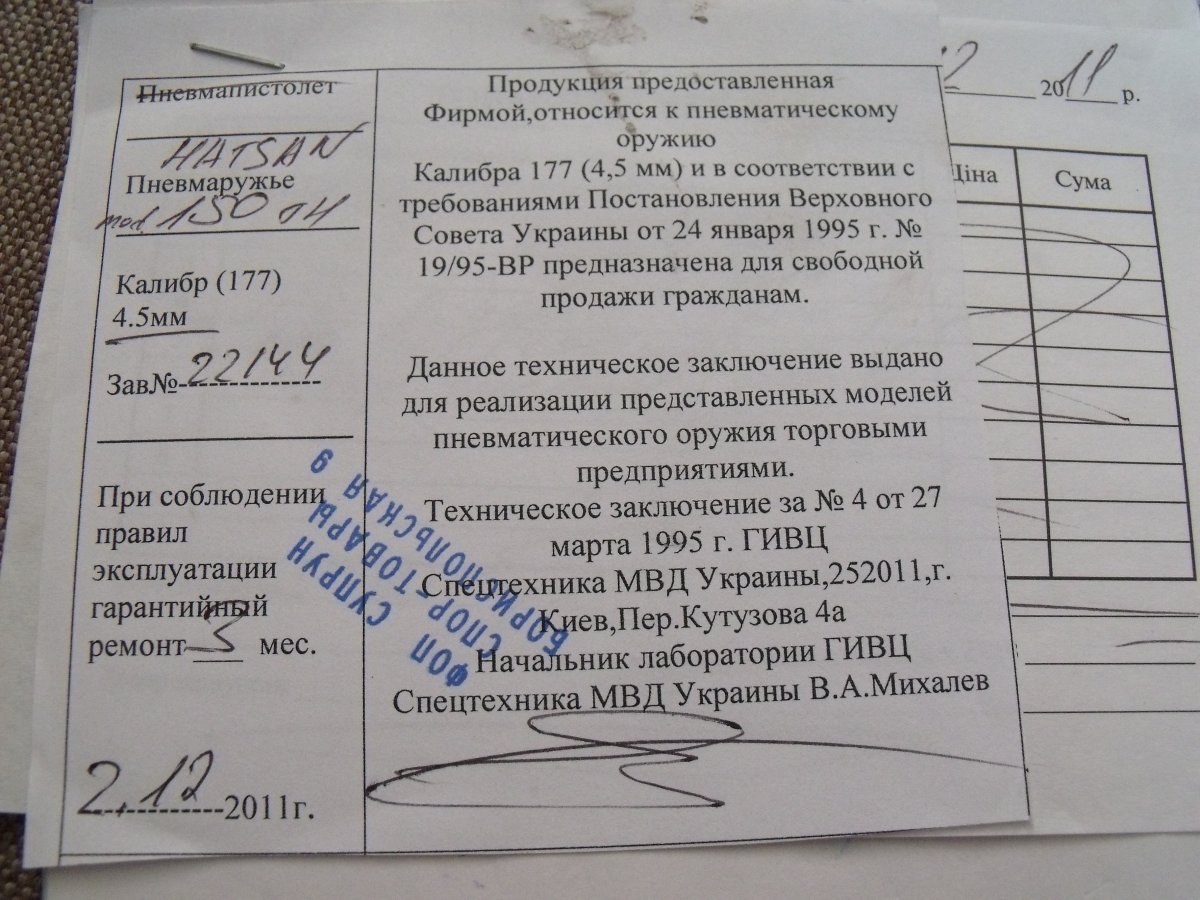 Пневмапистолет
HATSAN
Пневмаружье
mod 150 TH
Калибр (177)
4.5мм
Зав№ 22144
При соблюдении
правил
эксплуатации
гарантийный
ремонт 3 мес.
2.12 2011г.
Продукция предоставленная
Фирмой,относится к пневматическому
оружию
Калибра 177 (4,5 мм) и в соответствии с
требованиями Постановления Верховного
Совета Украины от 24 января 1995 г. №
19/95-ВР предназначена для свободной
продажи гражданам.
Данное техническое заключение выдано
для реализации представленных моделей
пневматического оружия торговыми
предприятиями.
Техническое заключение за № 4 от 27
марта 1995 г. ГИВЦ
Спецтехника МВД Украины,252011,г.
Киев,Пер.Кутузова 4а
Начальник лаборатории ГИВЦ
Спецтехника МВД Украины В.А.Михалев
ФОП СУПРУН
СПОРТТОВАРЫ
БОРИСПОЛЬСКАЯ 9
2011 р.
Ціна
Сума